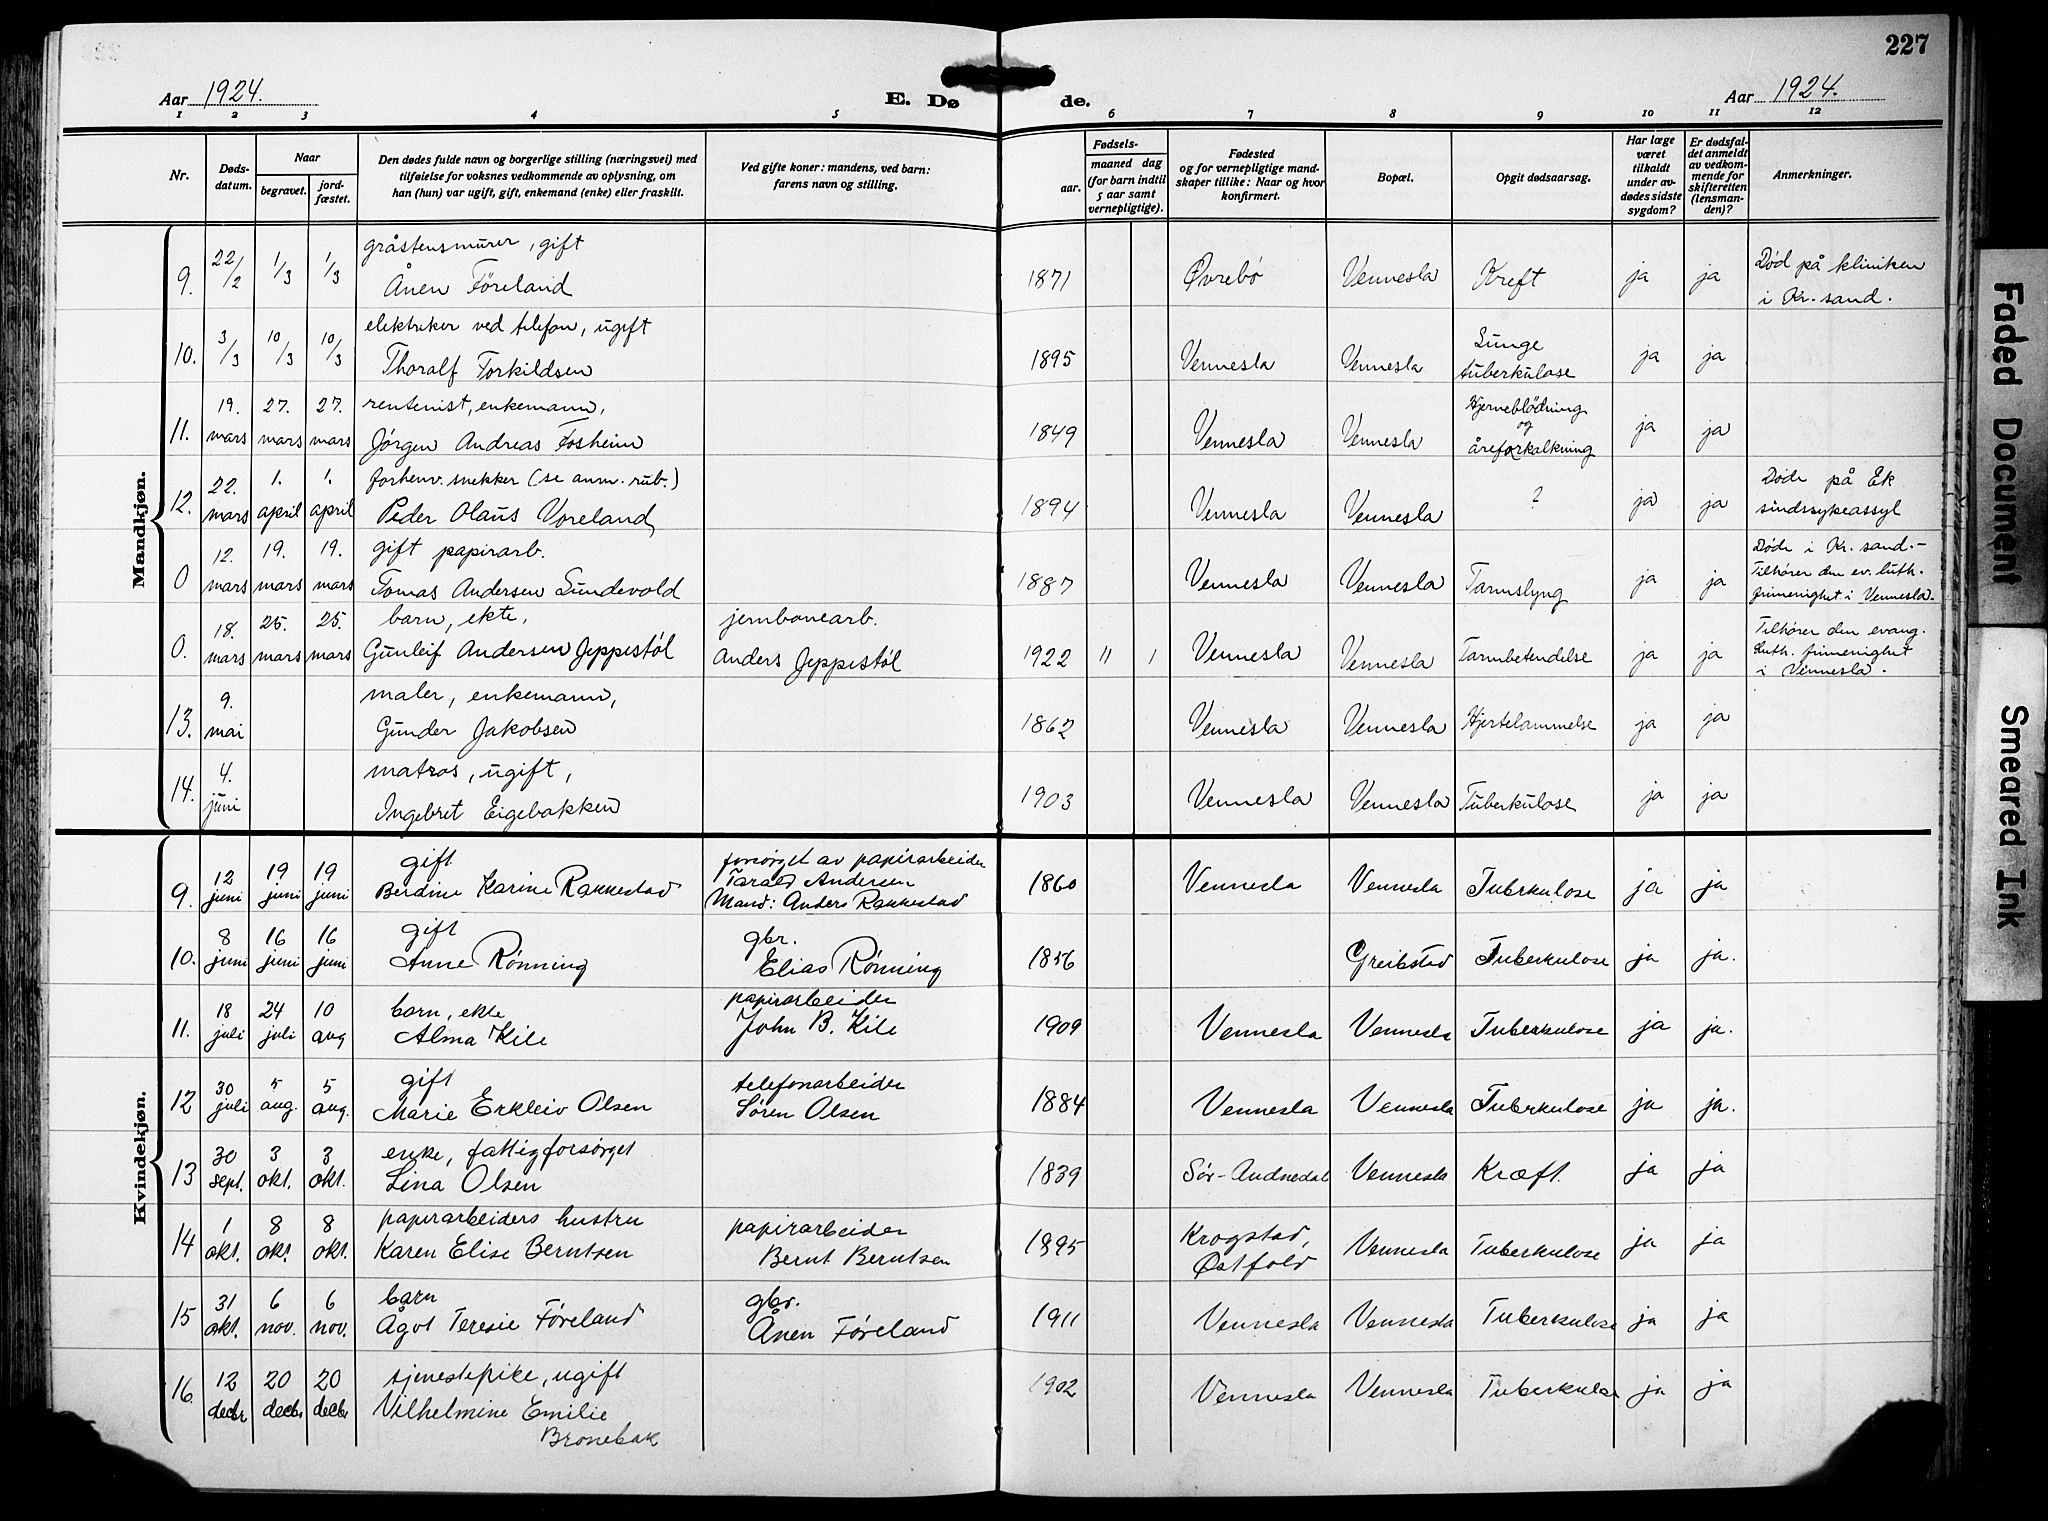 227
Aar 1924.
E. Dø de.
Aar 1924.
1 2 3 4 5 6 7 8 9 10 11 12
Nr.
Døds-
datum.
Naar
begravet.
jord-
fæstet.
Den dødes fulde navn og borgerlige stilling (næringsvei) med
tilføielse for voksnes vedkommende av oplysning, om
han (hun) var ugift, gift, enkemand (enke) eller fraskilt.
Ved gifte koner: mandens, ved barn:
farens navn og stilling.
Fødsels-
aar.
maaned dag
(for barn indtil
5 aar samt
vernepligtige).
Fødested
og for vernepligtige mand-
skaper tillike: Naar og hvor
konfirmert.
Bopæl.
Opgit dødsaarsag.
Har læge
været
tilkaldt
under av-
dødes sidste
sygdom?
Er dødsfal-
det anmeldt
av vedkom-
mende for
skifteretten
(lensman-
den)?
Anmerkninger.
Mandkjøn.
gråstensmurer, gift
9. 22/2 1/3 1/3 Ånen Föreland 1871 Øvrebø Vennesla Kreft ja ja Död på kliniken
i Kr. sand.
elektriker ved telefon, ugift
10. 3/3 10/3 10/3 Thoralf Torkildsen 1895 Vennesla Vennesla Lunge ja ja
tuberkulose
19. 27. 27. rentenist, enkemann, Hjerneblödning
11. mars mars mars Jörgen Andreas Fosheim 1849 Vennesla Vennesla og ja ja
åreforkalkning
22. 1. 1. forhenv. snekker (se anm. rub.) Döde på Ek
12. mars april april Peder Olaus Voreland 1894 Vennesla Vennesla ? ja ja sindssykeassyl
12. 19. 19. gift papirarb. Döde i Kr. sand.-
0 mars mars mars Tomas Andersen Sundevold 1887 Vennesla Vennesla Tarmslyng ja ja Tilhörer den ev. luth.
frimenighet i Vennesla.
18. 25. 25. barn, ekte, jernbanearb. Tilhörer den evang.
0. mars mars mars Gunleif Andersen Jeppestöl Anders Jeppestöl 1922 11 1 Vennesla Vennesla Tarmbetendelse ja ja Luth. frimenighet
i Vennesla.
9. maler, enkemann,
13. mai Gunder Jakobsen 1862 Vennesla Vennesla Hjertelammelse ja ja
4. matros, ugift,
14. juni Ingebret Eigebakken 1903 Vennesla Vennesla Tuberkulose ja ja
Kvindekjøn.
12 19 19 gift forsörget av papirarbeider
9. juni juni juni Berdine Karine Rakkestad Tarald Andersen 1860 Vennesla Vennesla Tuberkulose ja ja
Mand: Anders Rakkestad
8 16 16 gift gbr.
10. juni juni juni Anne Rönning Elias Rönning 1856 Greibstad Tuberkulose ja ja.
18 24 10 barn, ekte papirarbeider
11. juli juli aug Alma Kile John B. Kile 1909 Vennesla Vennesla Tuberkulose ja ja.
30 5 5 gift telefonarbeider
12 juli aug. aug. Marie Erkleiv Olsen Sören Olsen 1884 Vennesla Vennesla Tuberkulose ja ja.
30 3 3 enke, fattigforsørget
13 sept. okt. okt. Lina Olsen 1839 Sör-Audnedal Vennesla Kræft. ja ja
1 8 8 papirarbeiders hustru papirarbeider
14 okt. okt. okt. Karen Elise Berntsen Bernt Berntsen 1895 Krogstad, Østfold Vennesla Tuberkulose ja ja
31 6 6 barn gbr.
15 okt. nov. nov. Ågot Teresie Föreland Ånen Föreland 1911 Vennesla Vennesla Tuberkulose ja ja
12 20 20 tjenestepike, ugift
16. decbr decbr decbr Vilhelmine Emilie 1902 Vennesla Vennesla Tuberkulose ja ja
Bronebak
Faded Document
Smeared Ink